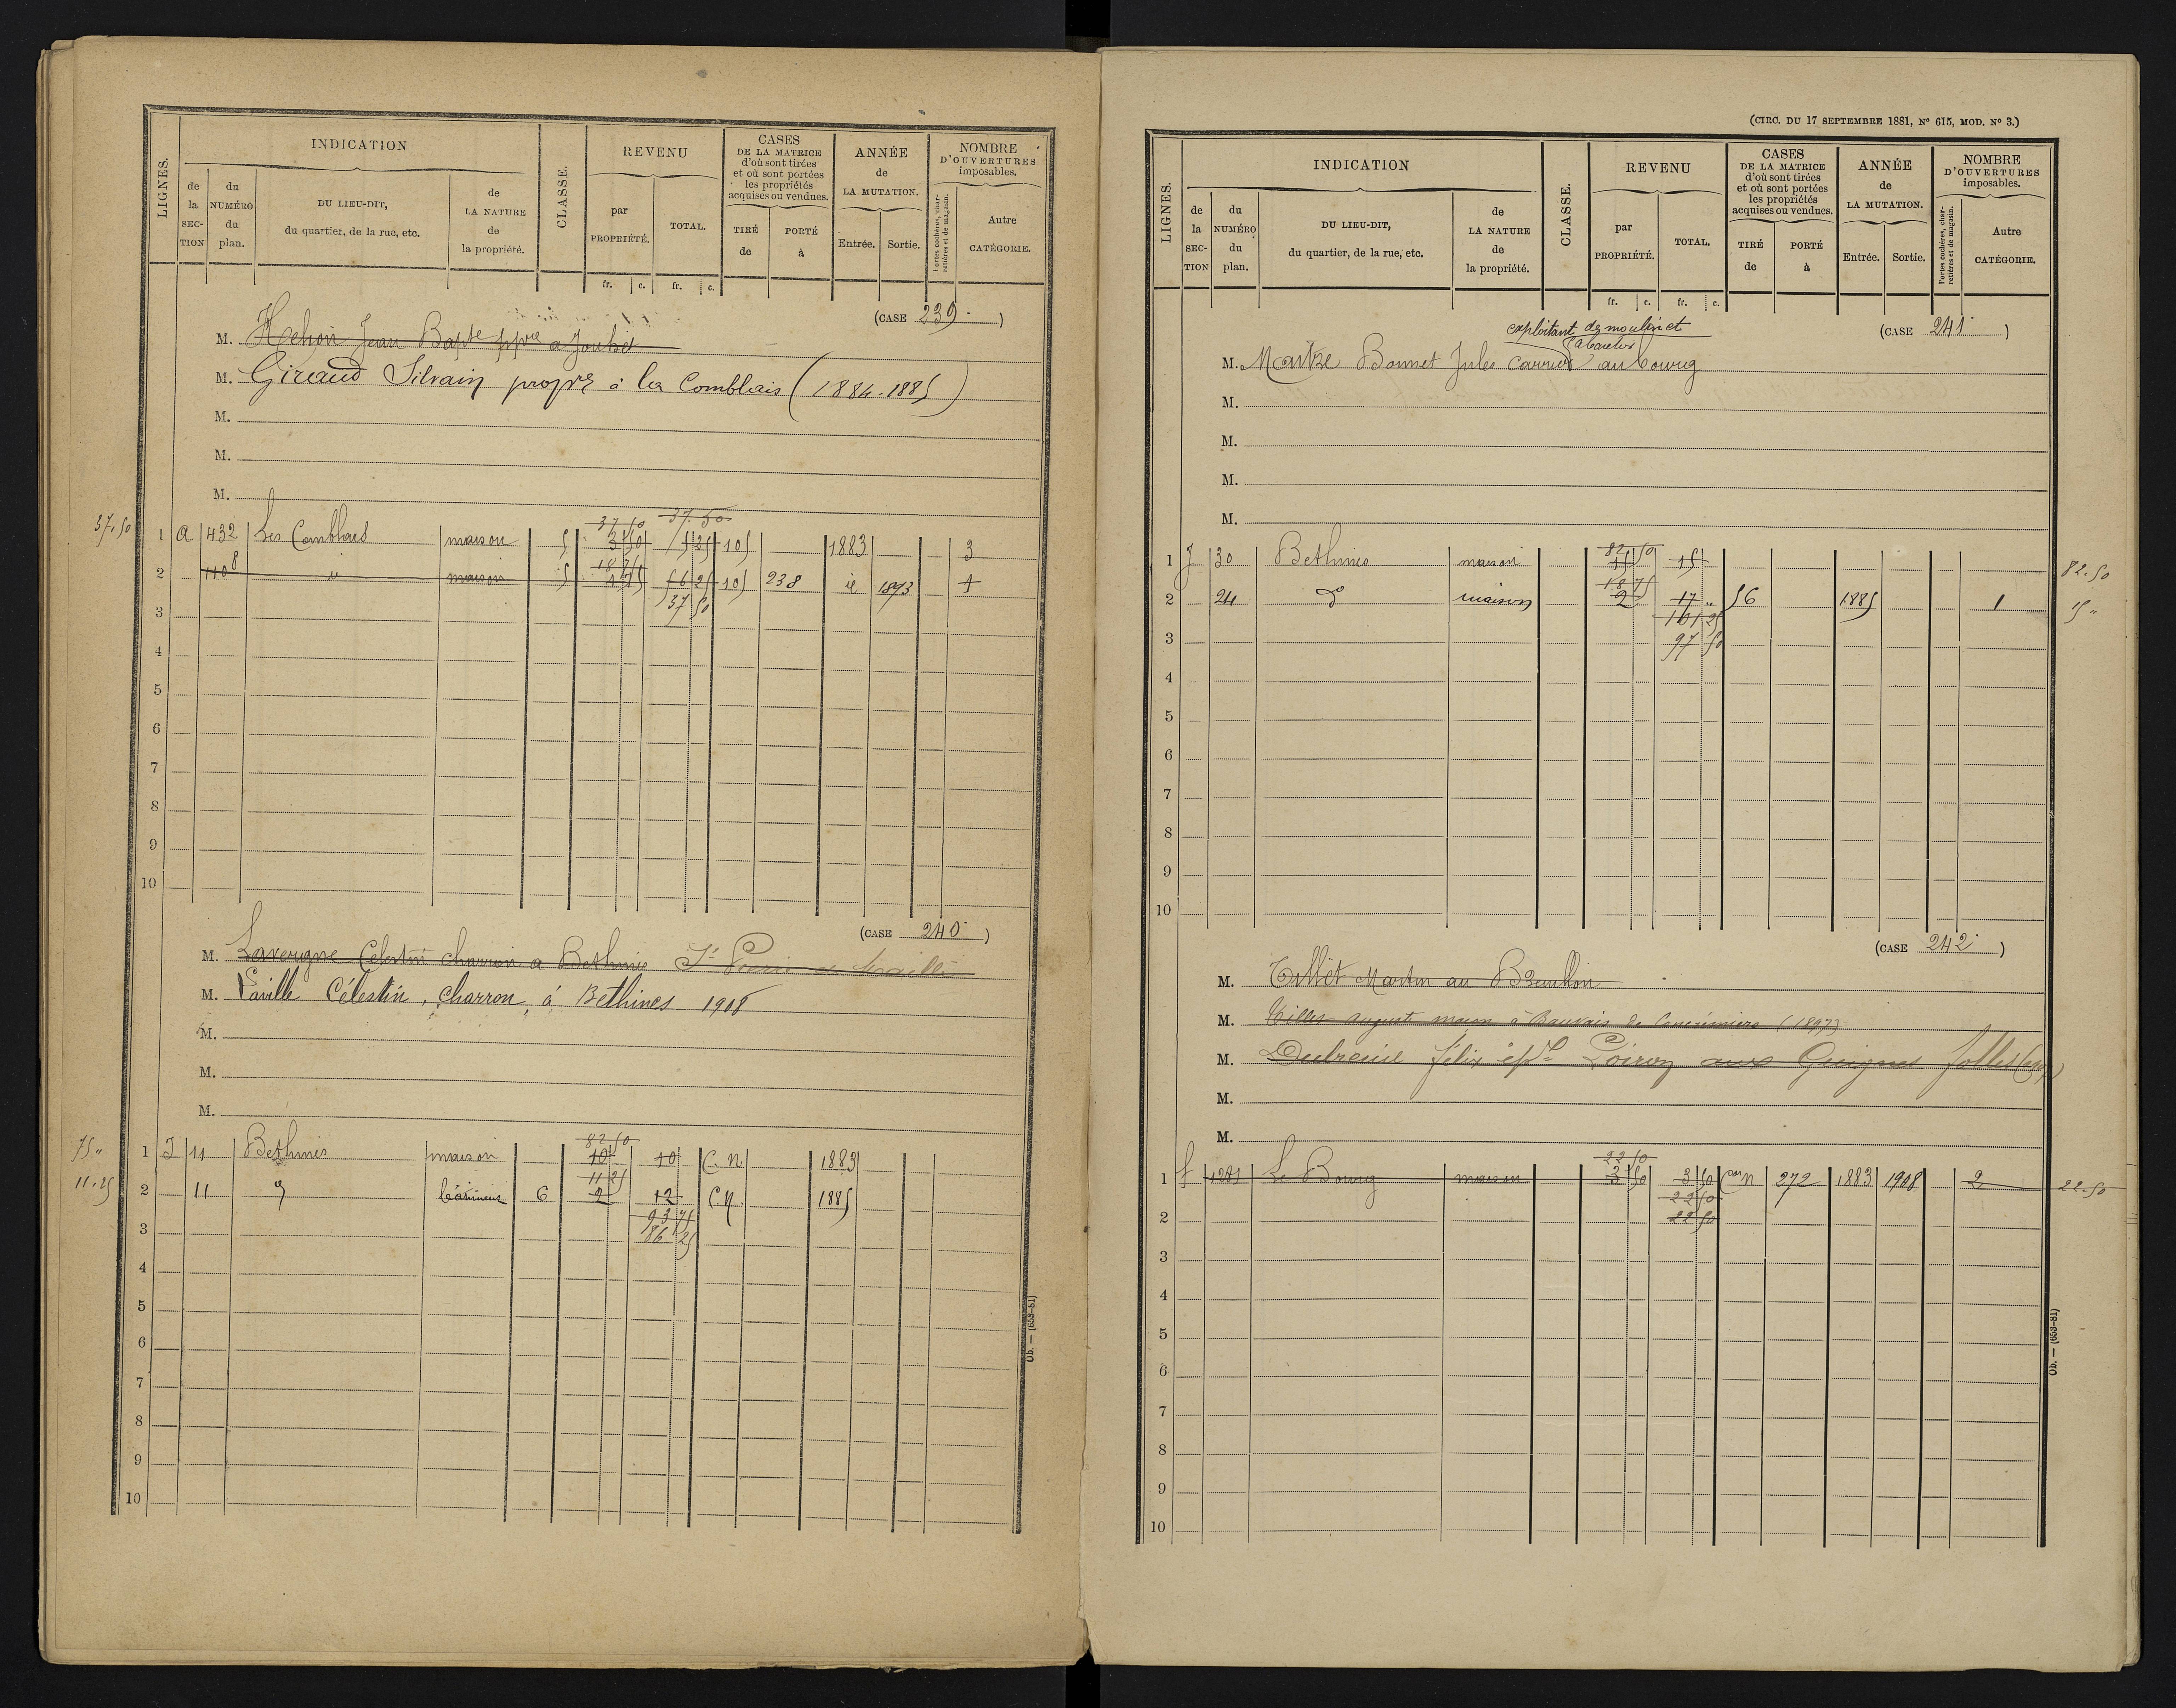 INDICATION
REVENU
CASES
DE LA MATRICE
d'où sont tirées
et où sont portées
les propriétés
acquises ou vendues.
ANNÉE
de
LA MUTATION.
NOMBRE
D'OUVERTURES
imposables.
LIGNES.
de
la
SEC-
TION
du
NUMÉRO
du
plan.
DU LIEU-DIT,
du quartier, de la rue, etc.
de
LA NATURE
de
la propriété.
CLASSE.
par
PROPRIÉTÉ.
TOTAL.
TIRÉ
de
PORTÉ
à
Entrée.
Sortie.
Portes cochères, char-
retières et de magasin.
Autre
CATÉGORIE.
fr. c. fr. c.
(CASE 239)
M. Jean Bapte ppre a
M. Giraud Silvain propre à les Comblais (1884-1885)
M.
M.
M.
37.50
37 50 37.50
1 a 432 Les Comblais maison 5 3 50 5 25 105 1883 3
18 75
2 1108 id maison 5 56 25 105 238 id 1893 1
37 50
3
4
5
6
7
8
9
10
(CASE 240)
M. Lavergne Celestin charron a Bethines
M. Laville Célestin, charron, à Bethines 1908
M.
M.
M.
75 "
82 50
1 J 11 Bethines maison 10 10 C.N 1883
11.25
11 25
2 11 bâtiment 6 2 12 C.N. 1885
93 75
86 25
3
4
5
6
7
8
9
10
Ob. — (653-81)
(CIRC. DU 17 SEPTEMBRE 1881, No 615, MOD. No 3.)
INDICATION
REVENU
CASES
DE LA MATRICE
d'où sont tirées
et où sont portées
les propriétés
acquises ou vendues.
ANNÉE
de
LA MUTATION.
NOMBRE
D'OUVERTURES
imposables.
LIGNES.
de
la
SEC-
TION
du
NUMÉRO
du
plan.
DU LIEU-DIT,
du quartier, de la rue, etc.
de
LA NATURE
de
la propriété.
CLASSE.
par
PROPRIÉTÉ.
TOTAL.
TIRÉ
de
PORTÉ
à
Entrée.
Sortie.
Portes cochères, char-
retières et de magasin.
Autre
CATÉGORIE.
fr. c. fr. c.
exploitant de moulin et
(CASE 241)
M. Bonnet Jules au bourg
M.
M.
M.
M.
82 50
1 J 30 Bethines maison 15 15 82.50
18 75
2 24 do maison 2 17 " 56 1885 1 15 "
101 25
97 50
3
4
5
6
7
8
9
10
(CASE 242)
M. Tillet Martin au
M. Tillet August maçon à (1897)
M. Dubreuil félix Poiron aux
M.
M.
22 50
1 f 1281 Le Bourg maison 3 50 3 50 N 272 1883 1908 2 22.50
22 50
22 50
2
3
4
5
6
7
8
9
10
Ob. — (653-81)